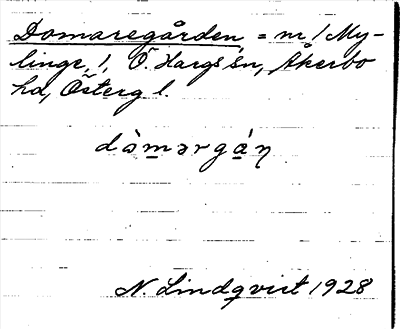 Domaregården = nr 1 My-
linge, 1, Ö. Hargs sn, Åkerbo
hd, Österg l.
dòmərgá́n
N. Lindqvist 1928